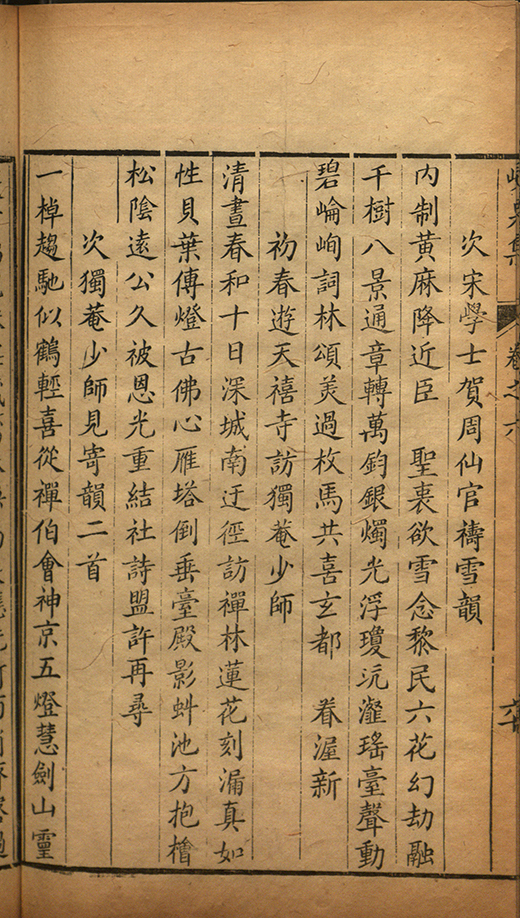 卷之六
次宋學士賀周仙官禱雪韻
內制黃麻降近臣　聖裏欲雪念黎民六花幻劫融
千樹八景通章轉萬鈞銀燭光浮瓊沆瀣瑤臺聲動
碧崘峋詞林頌美過枚馬共喜玄都　眷渥新
初春遊天禧寺訪獨菴少師
清晝春和十日深城南迂徑訪禪林蓮花刻漏真如
性貝葉傳燈古佛心雁塔倒垂臺殿影蚪池方抱檜
松陰遠公久被恩光重結社詩盟許再尋
次獨菴少師見寄韻二首
一棹趨馳似鶴輕喜從禪伯會神京五燈慧劍山靈